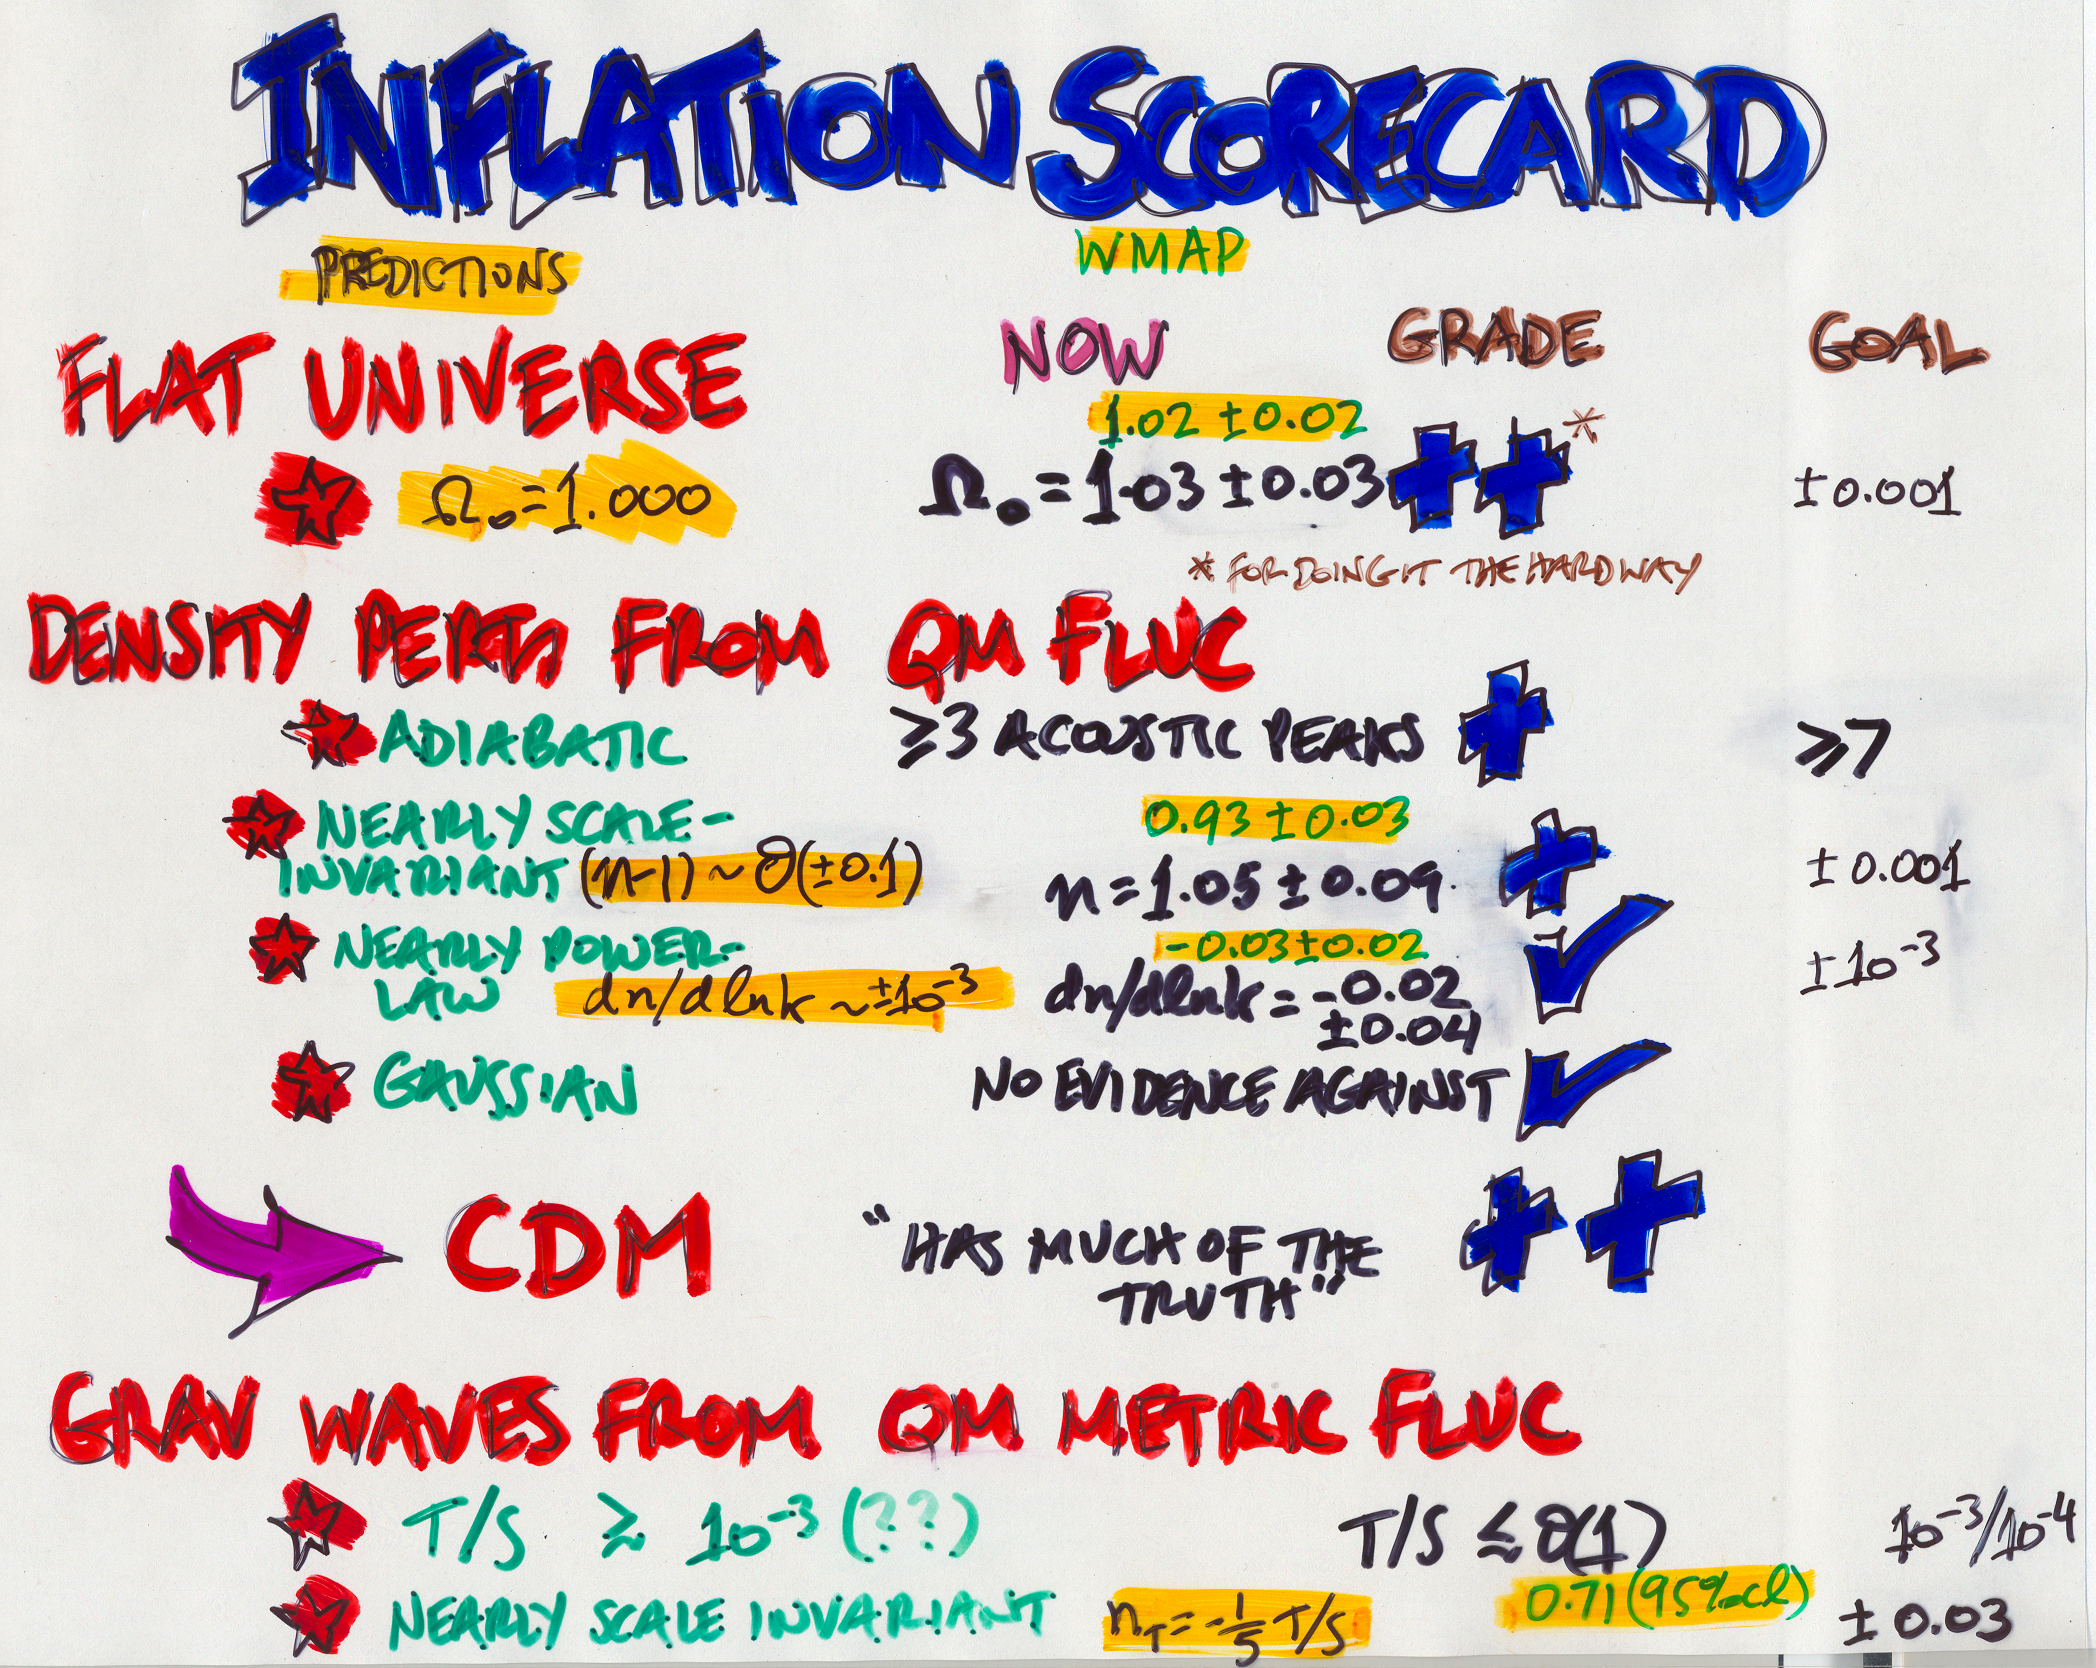 INFLATION SCORECARD
PREDICTIONS
WMAP
NOW GRADE GOAL
FLAT UNIVERSE
1.02 ±0.02
Ω₀=1.000 Ω₀=1.03±0.03 ++* ±0.001
* FOR DOING IT THE HARD WAY
DENSITY PERTS FROM QM FLUC
ADIABATIC ≥3 ACOUSTIC PEAKS + ≥7
NEARLY SCALE- 0.93±0.03
INVARIANT (n-1)~O(±0.1) n=1.05±0.09 + ±0.001
NEARLY POWER- -0.03±0.02
LAW dn/dlnk ~±10⁻³ dn/dlnk=-0.02 ✓ ±10⁻³
±0.04
GAUSSIAN NO EVIDENCE AGAINST ✓
CDM "HAS MUCH OF THE ++
TRUTH"
GRAV WAVES FROM QM METRIC FLUC
T/S ≥ 10⁻³ (??) T/S ≤ O(1) 10⁻³/10⁻⁴
NEARLY SCALE INVARIANT n_T=-1/5 T/S 0.71(95%cl) ±0.03